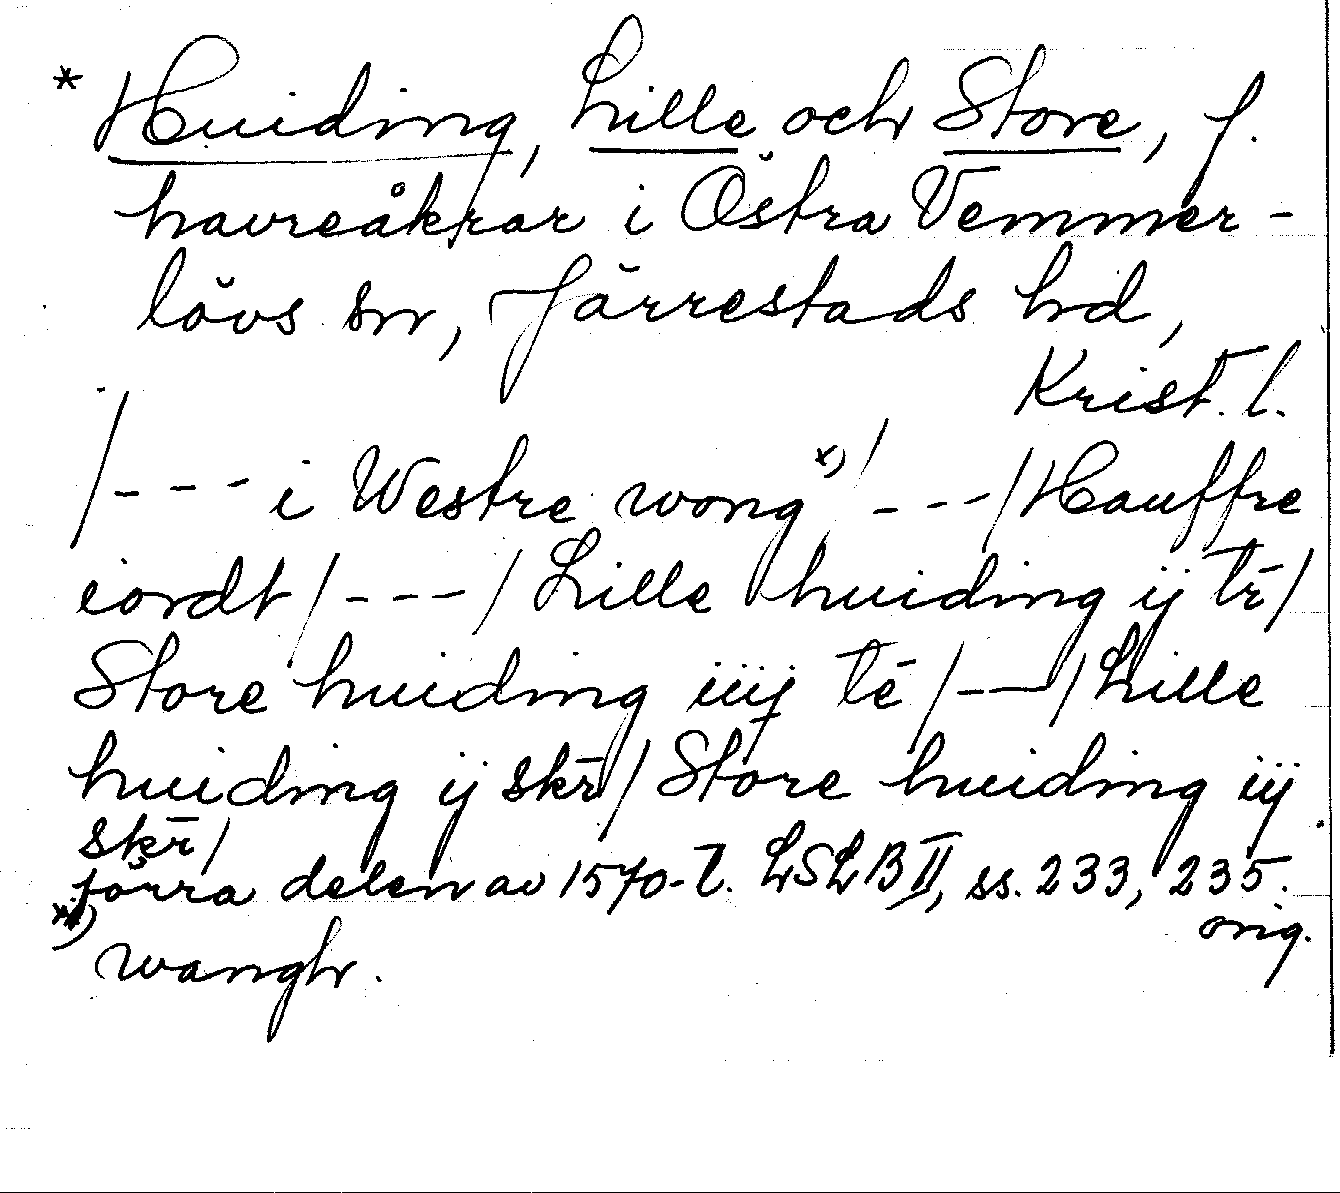 * Huiding, Lille och Store, f.
havreåkrar i Östra Vemmer-
lövs sn, Järrestads hd,
Krist. l.
/--- i Westre wong x) / ---/ Hauffre
iordt / --- / Lille huiding ij tē /
Store huiding iiij tē / --- / Lille
huiding ij skr̄ / Store huiding iij
skr̄ /
förra delen av 1570-t. LSLB II, ss. 233, 235.
orig.
x) wangh.